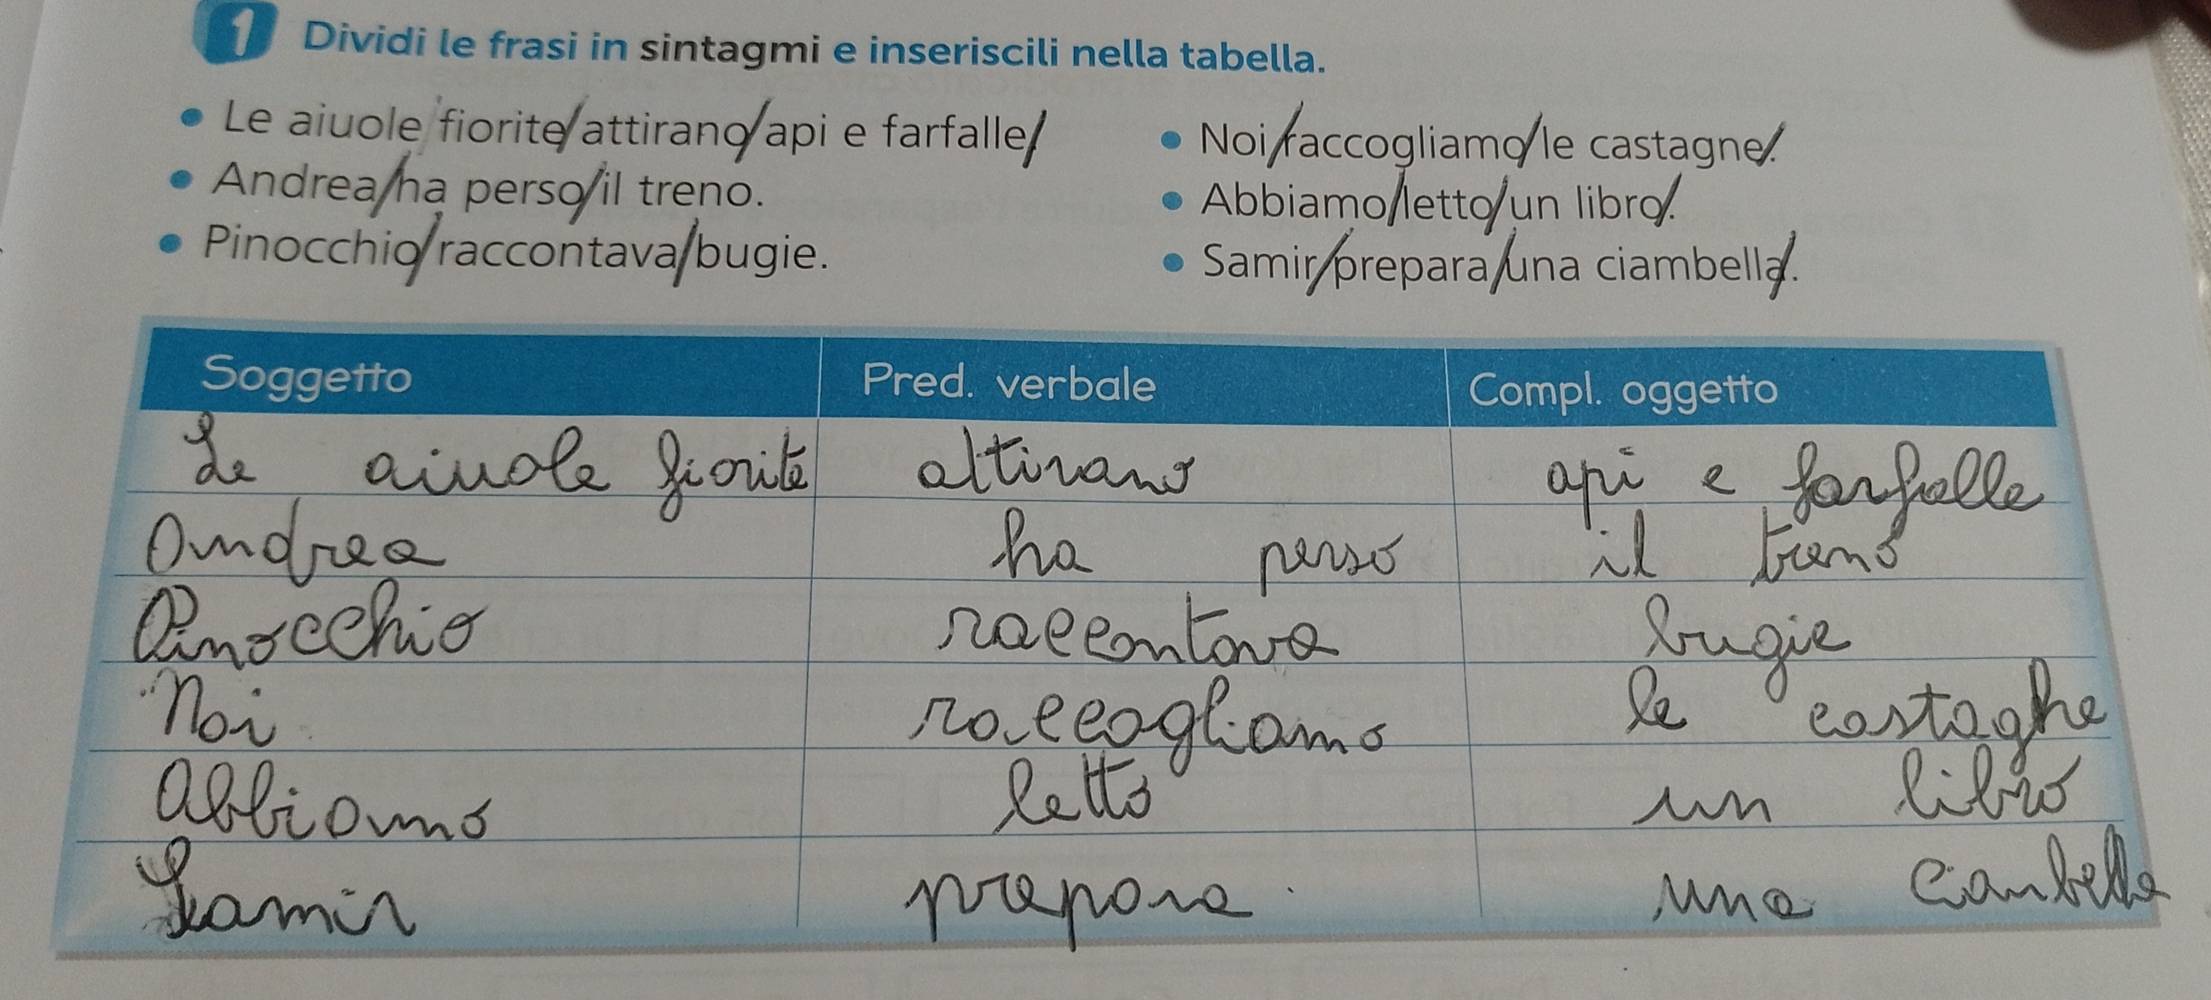 1 Dividi le frasi in sintagmi e inseriscili nella tabella.
• Le aiuole fiorite/attirano/api e farfalle/
• Andrea/ha perso/il treno.
• Pinocchio/raccontava/bugie.
• Noi/raccogliamo/le castagne/.
• Abbiamo/letto/un libro/.
• Samir/prepara/una ciambella/.
Soggetto Pred. verbale Compl. oggetto
Le aiuole fiorite attirano api e farfalle
Andrea ha perso il treno
Pinocchio raccontava bugie
Noi raccogliamo le castaghe
Abbiamo letto un libro
Samir prepara una ciambella